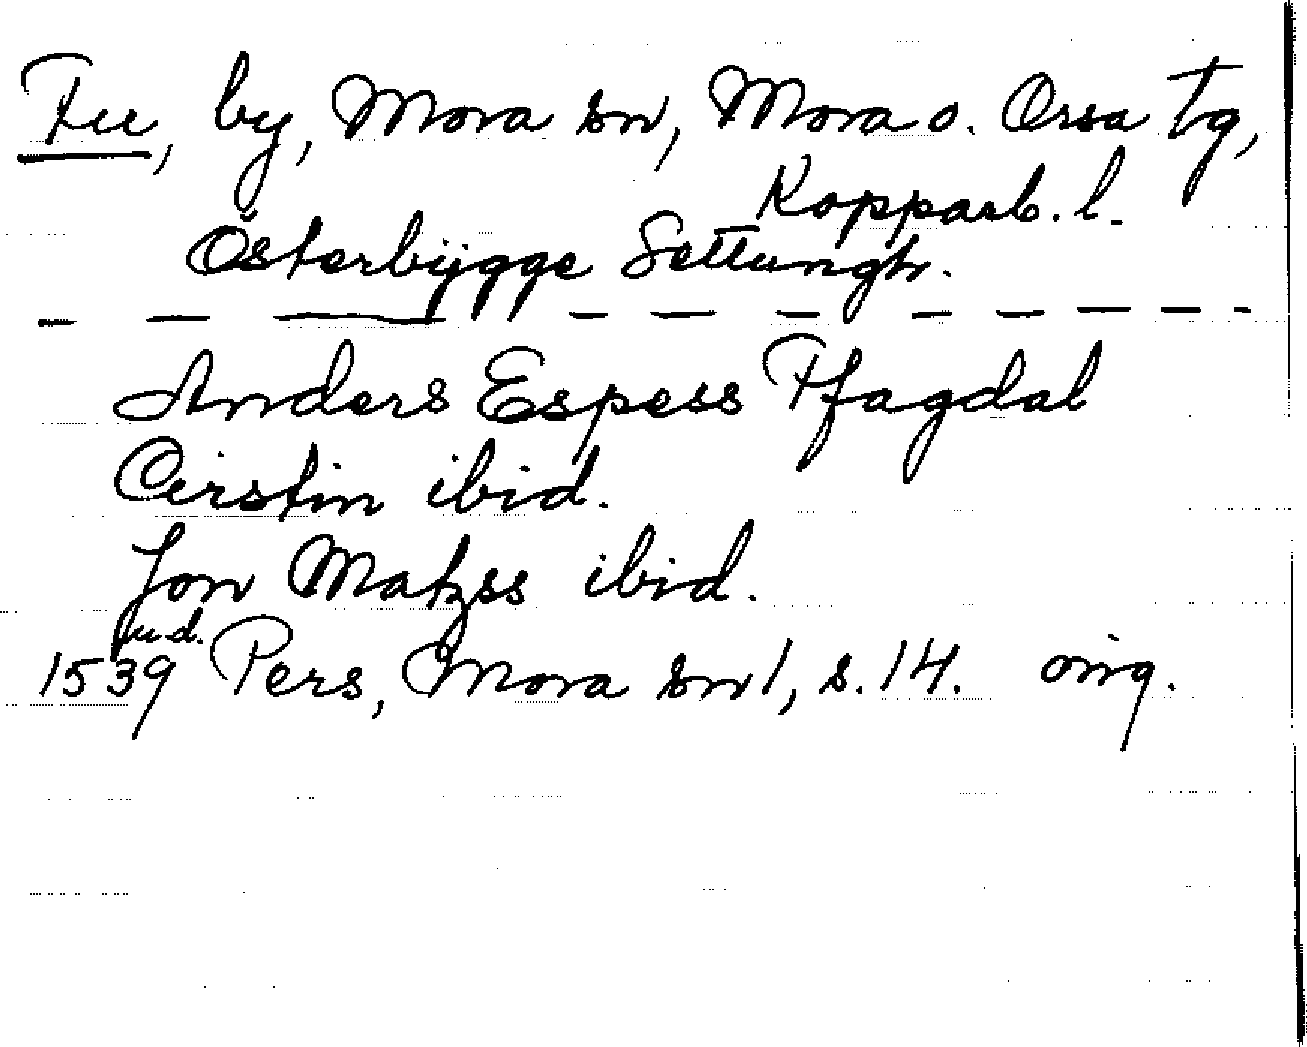 Fu, by, Mora sn, Mora o. Orsa tg,
Kopparb. l.
Österbÿgge Settungh.
Anders Espess Ffagdal
Cirstin ibid.
Jon Matzss ibid.
1539 Pers, Mora sn 1, s. 14. orig.